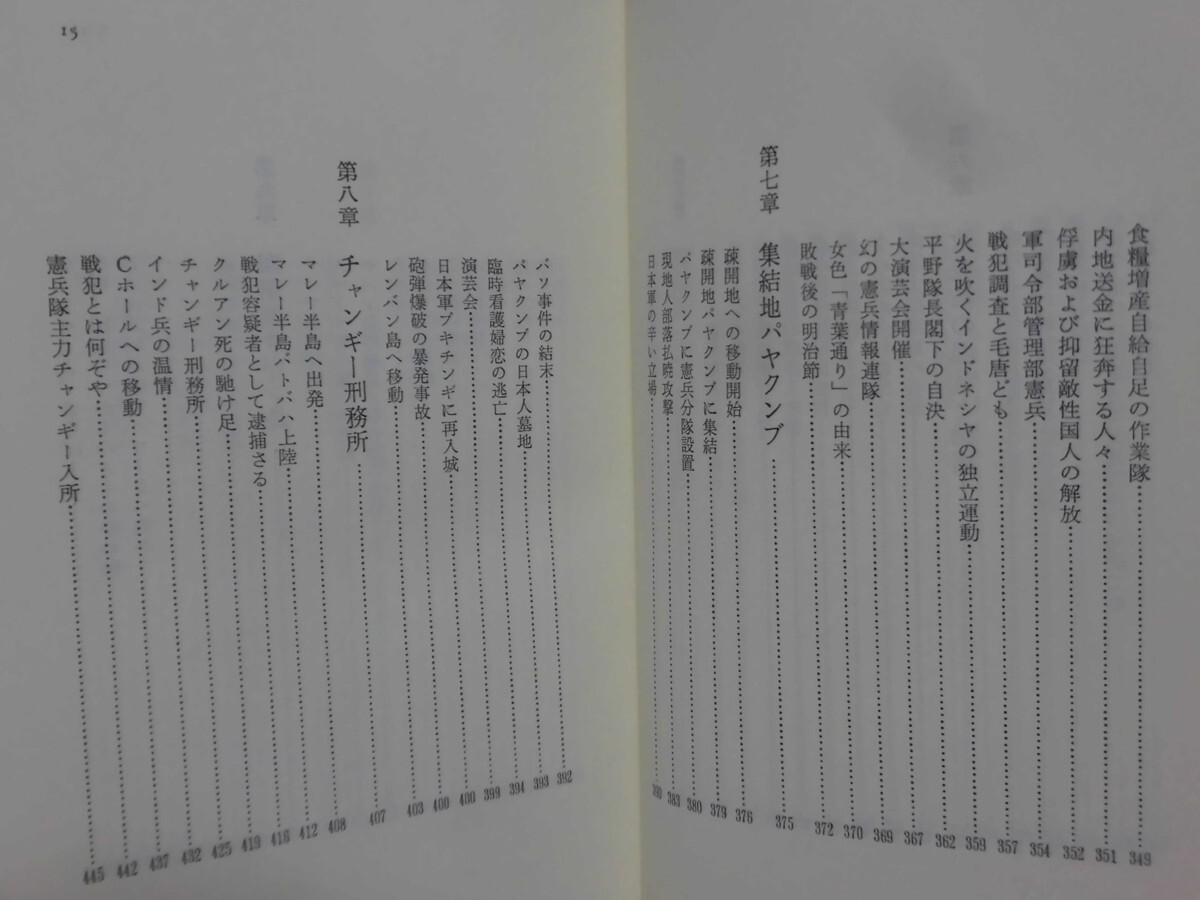 食糧増産自給自足の作業隊……349
内地送金に狂奔する人々……351
俘虜および抑留敵性国人の解放……352
軍司令部管理部憲兵……354
戦犯調査と毛唐ども……357
火を吹くインドネシヤの独立運動……359
平野隊長閣下の自決……362
大演芸会開催……367
幻の憲兵情報連隊……369
女色「青葉通り」の由来……370
敗戦後の明治節……372
第七章 集結地パヤクンブ……375
疎開地への移動開始……376
疎開地パヤクンブに集結……379
パヤクンブに憲兵分隊設置……380
現地人部落払暁攻撃……383
日本軍の辛い立場……
バソ事件の結末……392
パヤクンブの日本人墓地……393
臨時看護婦恋の逃亡……394
演芸会……399
日本軍ブキチンギに再入城……400
砲弾爆破の暴発事故……400
レンバン島へ移動……403
第八章 チャンギー刑務所……407
マレー半島へ出発……408
マレー半島バトパハ上陸……412
戦犯容疑者として逮捕さる……416
クルアン死の馳け足……419
チャンギー刑務所……425
インド兵の温情……432
Cホールへの移動……437
戦犯とは何ぞや……442
憲兵隊主力チャンギー入所……445
15